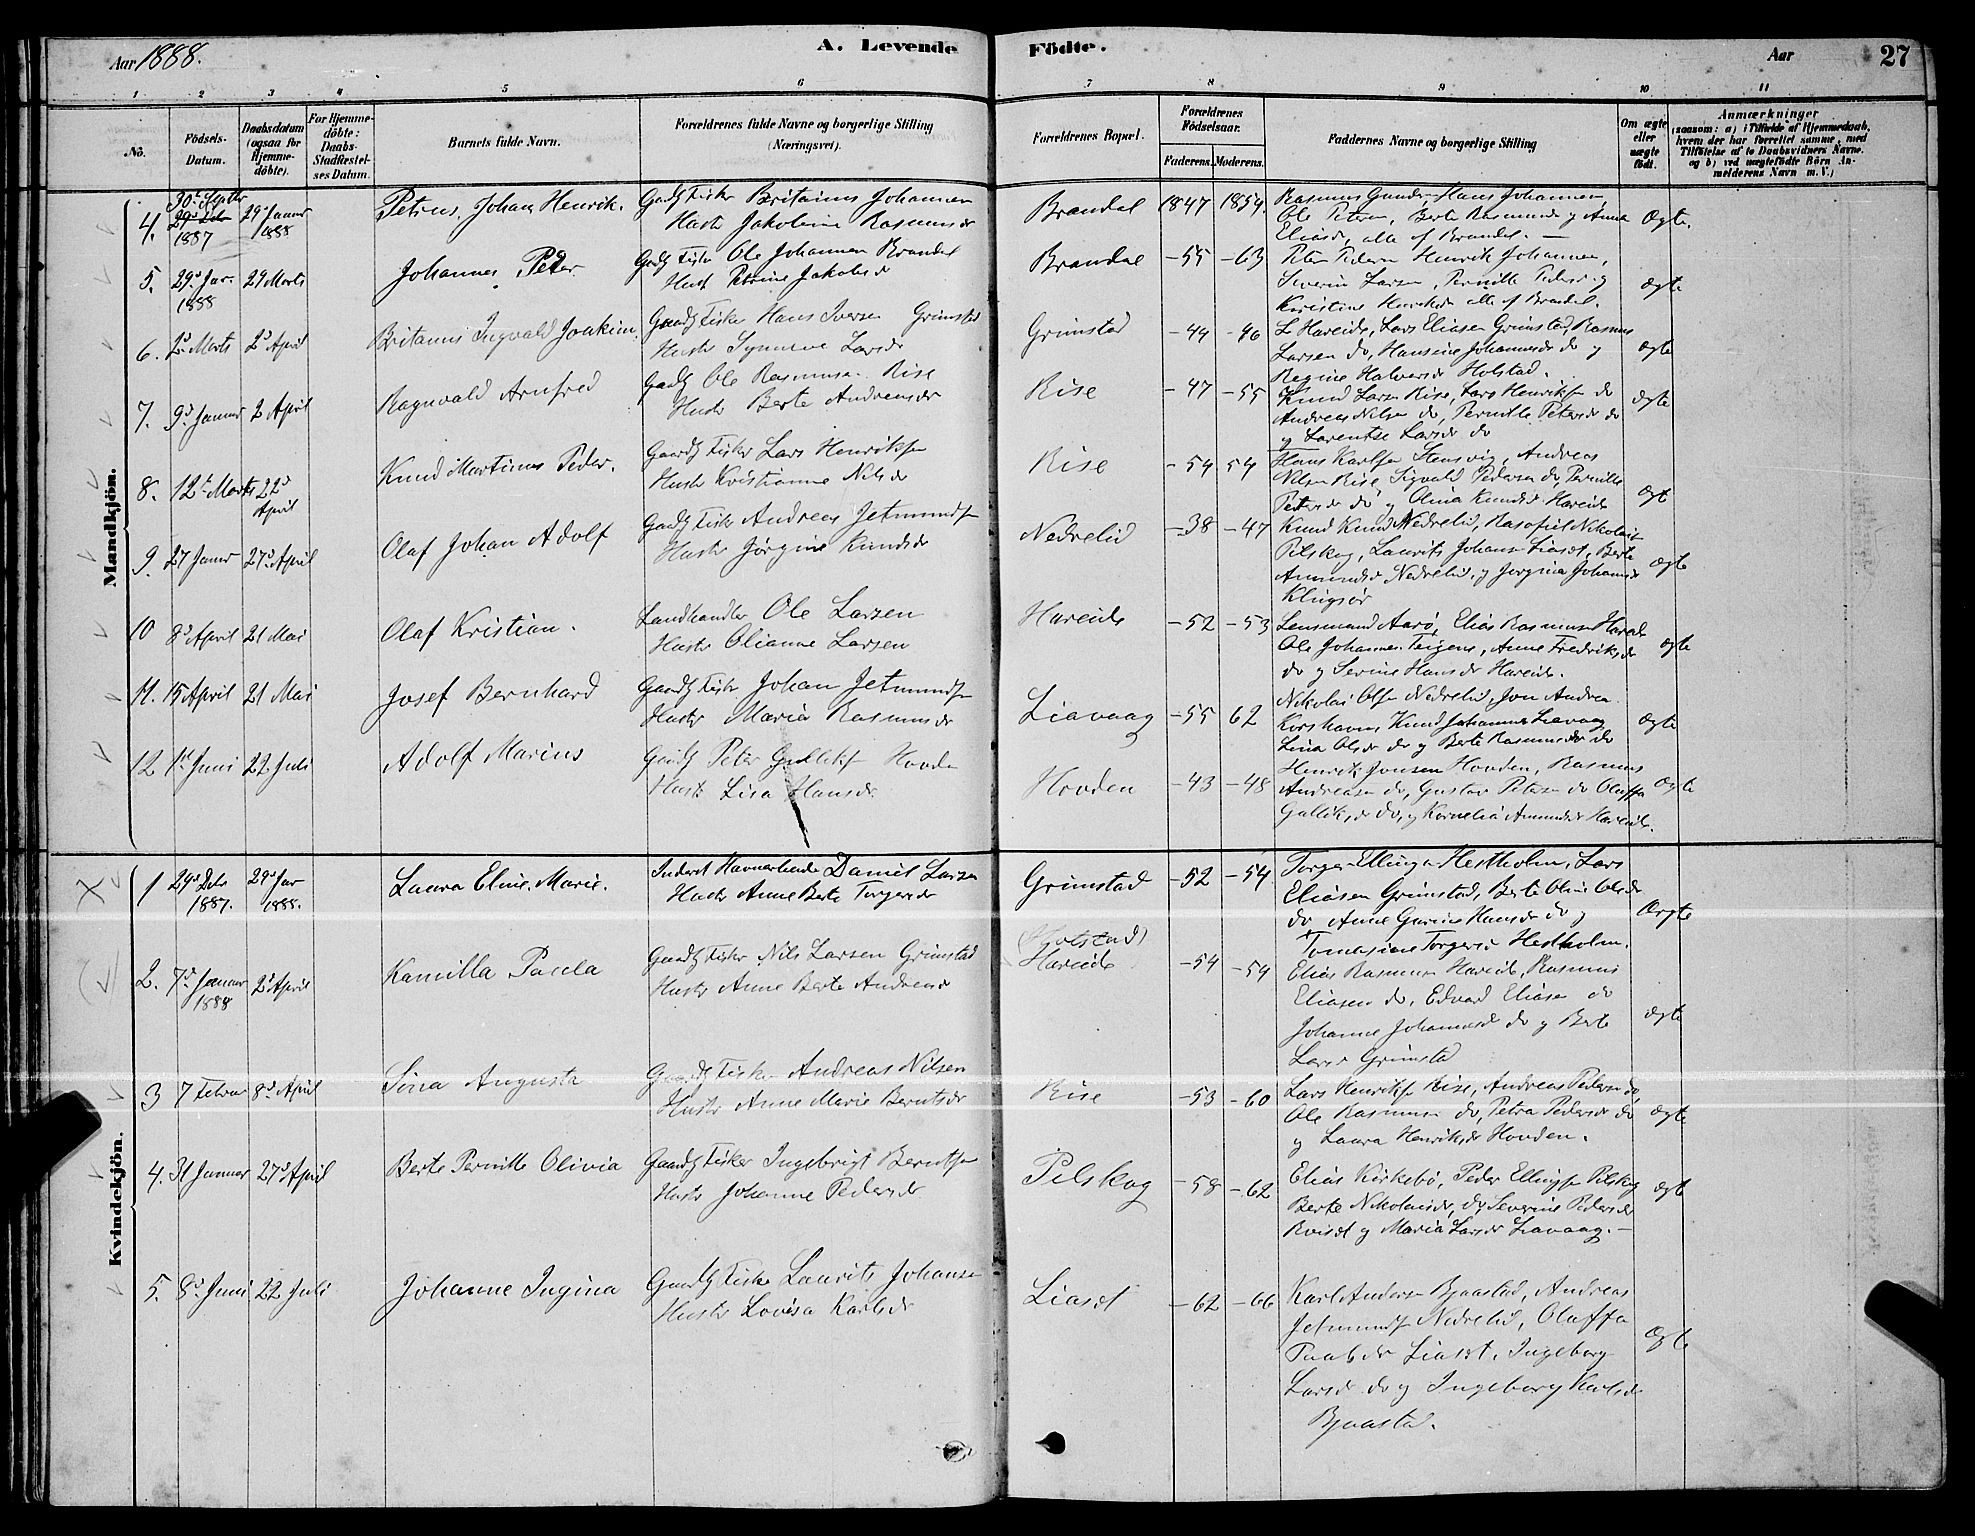 Aar 1888.
A. Levende Födte.
Aar
27
1 2 3 4 5 6 7 8 9 10 11
No.
Födsels-Datum.
Daabsdatum (ogsaa for Hjemmedöbte).
For Hjemmedöbte: Daabs-Stadfæstelses Datum.
Barnets fulde Navn.
Forældrenes fulde Navne og borgerlige Stilling (Næringsvei).
Forældrenes Bopæl.
Forældrenes Födselsaar.
Faderens. Moderens.
Faddernes Navne og borgerlige Stilling
Om ægte eller uægte födt.
Anmærkninger
(saasom: a) i Tilfælde af Hjemmedaab, hvem der har forrettet samme, med Tilföielse af to Daabsvidners Navne. og b) ved uægtefödte Börn Anmelderens Navn m. V.)
Mandkjön.
4. 30te Septbr 29de Dcbr 1887 29de Januar 1888 Petrus Johan Henrik. Gaardb Fisker Britanus Johansen Brandal 1847 1859. Rasmus Hans Johannesen,
Hustr Jakobine Rasmusdr Ole Petersen, Berte Rasmusdr og Anne
Eliasdr, alle af Brandal. Ægte.
5. 29de Jan. 1888 29 Marts Johannes Peder Gaardb Fisker Ole Johannesen Brandal Brandal -55 -63 Peter Pedersen Henrik Johannesen,
Hust Petrine Jakobsdr Severin Larsen, Pernille Pedersdr og
Kristine Henriksdr alle af Brandal. Ægte
6. 2den Marts 2den April Britanus Ingvald Joakim. Gaardb Fisker Hans Iversen Grimstad Grimstad -44 -46 L Hareide, Lars Eliasen Grimstad, Rasmus
Hustr Synneve Larsdr Larsen do, Hansine Johannesdr do og
Regine Halvorsdr Holstad. Ægte
7. 9de Januar 2 April Ragnvald Arnfred Gaardb Ole Rasmussen Rise Rise -47 -55 Knud Larsen Rise, Lars Henriksen do
Hustr Berte Andreasdr Andreas Nilsen do, Pernille Petersdr do
og Larentse Larsdr do Ægte
8. 12te Marts 22de April Knud Martinus Peder. Gaardb Fisker Lars Henriksen Rise -54 54 Hans Karlsen Stensvig, Andreas
Hustr Kristianne Nilsdr Nilsen Rise, Sigvald Pedersen do, Pernille
Petersdr do og Olina Knudsdr Hareide Ægt
9. 27 Januar 27de April Olaf Johan Adolf Gaardb Fisker Andreas Jetmundsen Nedrelid -38 -47 Knud Knudsen Nedrelid, Nikolaisen
Hustr Jørgine Knudsdr Pilskog, Laurits Johansen Liaset, Berte
Amundsdr Nedrelid, og Jørgina Johansdr
Klungsør Ægte
10 8de April 21 Mai Olaf Kristian. Landhandler Ole Larsen Hareide -52 -53 Lensmand Aarø, Elias Rasmussen Hareide
Hustr Olianne Larsen Ole Johannesen Teigene, Anne Fredriksdr
do og Serine Hansdr Hareide. Ægte
11. 15 April 21 Mai Josef Bernhard Gaardb Fisker Johan Jetmundsen Liavaag -55 62 Nikolai Olsen Nedrelid, Jon Andreas
Hustr Maria Rasmusdr Korshavn, Knud Johannesen Liavaag
Lina Olsdr do og Berte Rasmusdr do Ægte
12 1ste Juni 22 Juli Adolf Marius Gaardb Peter Gulliksen Hovden Hovden -43 -48 Henrik Jonsen Hovden, Rasmus
Hustr Lisa Hansdr. Andreasen do, Gustav Petersen do Oluffa
Gulliksdr do, og Kornelia Amundsdr Hareide. Ægte
Kvindekjön.
1 29de Dcbr 1887. 29de Jan 1888. Laura Eline Marie. Inderst Havnearbeider Daniel Larsen Grimstad -52 -54. Torger Ellingsen Hestholm, Lars
Hustr Anne Berte Torgersdr Eliasen Grimstad, Berte Oline Olsdr
do Anne Gurine Hansdr do og
Tomasine Torgersdr Hestholm. Ægte
2. 7de Januar 1888 2den April Kamilla Paula Gaardb Fisker Nils Larsen Grimstad (Holstad) Hareide -54 -59 Elias Rasmussen Hareide, Rasmus
Hustr Anne Berte Andreasdr Eliasen do, Edvard Eliasen do
Johanne Johannesdr do og Berte
Larsdr Grimstad Ægte
3 7 Febrar 8de April Sina Augusta Gaardb Fisker Andreas Nilsen Rise -53 -60 Lars Henriksen Rise, Andreas Pedersen do,
Hustr Anne Marie Berntsdr Ole Rasmussen do, Petra Pedersdr do
og Laura Henriksdr Hovden. Ægte
4. 31 Januar 27de April Berte Pernille Olivia Gaardb Fisker Ingebrigt Berntsen Pilskog -58 -62 Elias Kirkebø, Peder Ellingsen Pilskog
Hustr Johanne Pedersdr Berte Nikolaisdr, do, Severine Pedersdr
Røiset og Maria Larsdr Liavaag. Ægt
5. 8de Juni 22 Juli Johanne Ingina Gaardb Fisker Laurits Johansen Liaset -62 -66 Karl Andersen Bjaastad, Andreas
Hustr Lovisa Karlsdr Jetmundsen Nedrelid, Oluffa
Paulsdr Liaset, Ingeborg
Larsdr do og Ingeborg Karlsdr
Bjaastad. Ægte